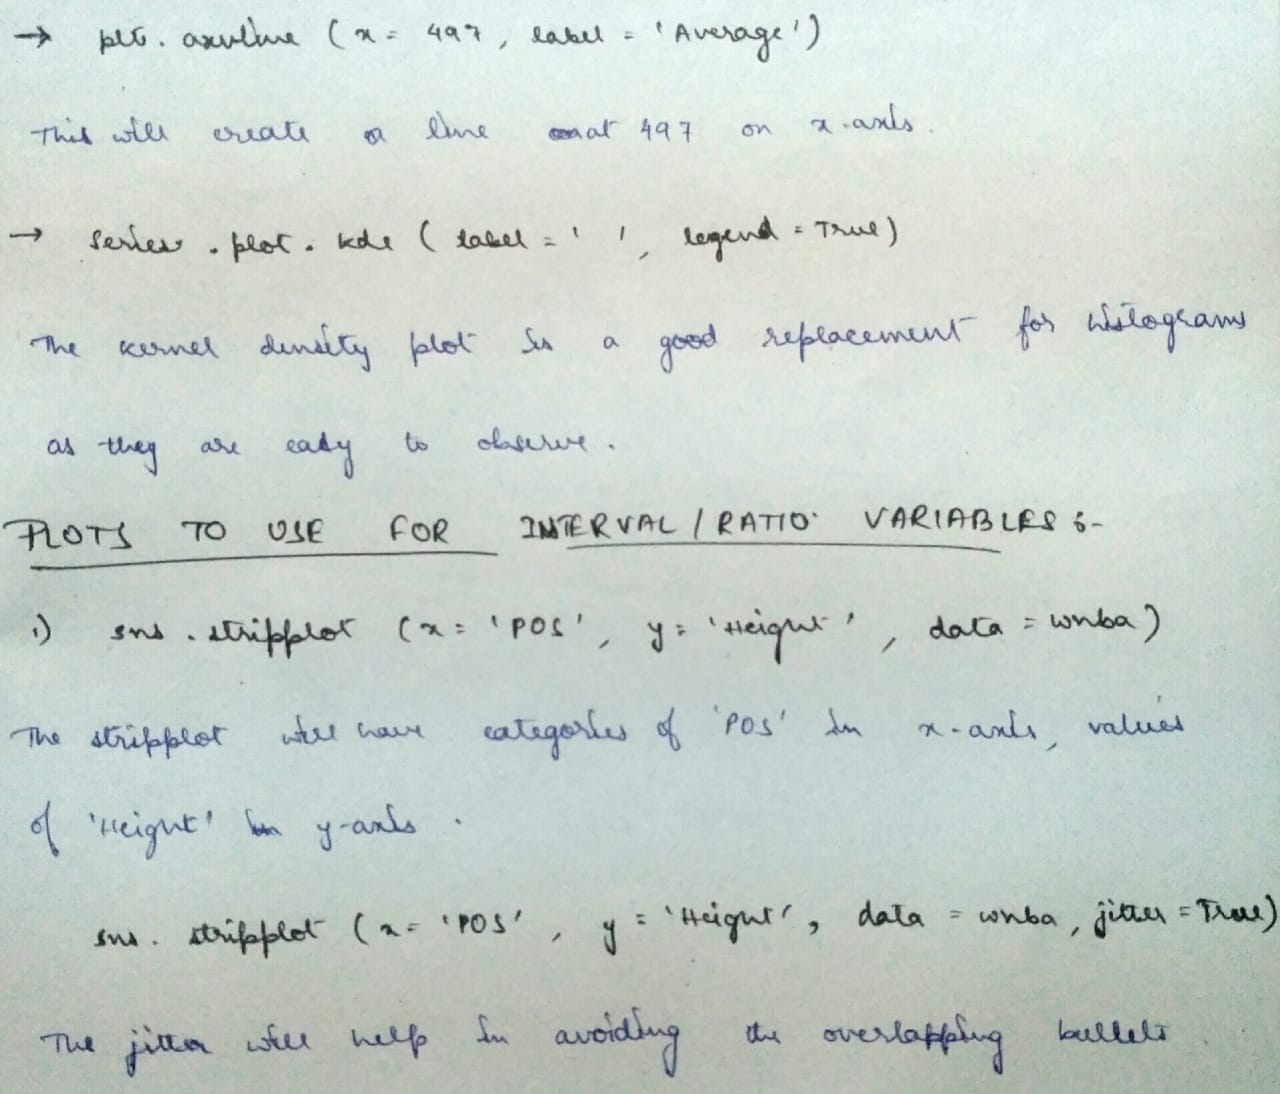 → plt. axvline (x = 497, label = 'Average')
This will create a line at 497 on x-axis.
→ Series . plot . kde ( label = ' ', legend = True)
The kernel density plot is a good replacement for histograms
as they are easy to observe.
PLOTS TO USE FOR INTERVAL / RATIO VARIABLES :-
1) sns . stripplot (x = 'POS', y = 'Height', data = wnba)
The stripplot will have categories of 'POS' in x-axis, values
of 'Height' in y-axis.
sns. stripplot (x = 'POS', y = 'Height', data = wnba, jitter = True)
The jitter will help in avoiding the overlapping bullets